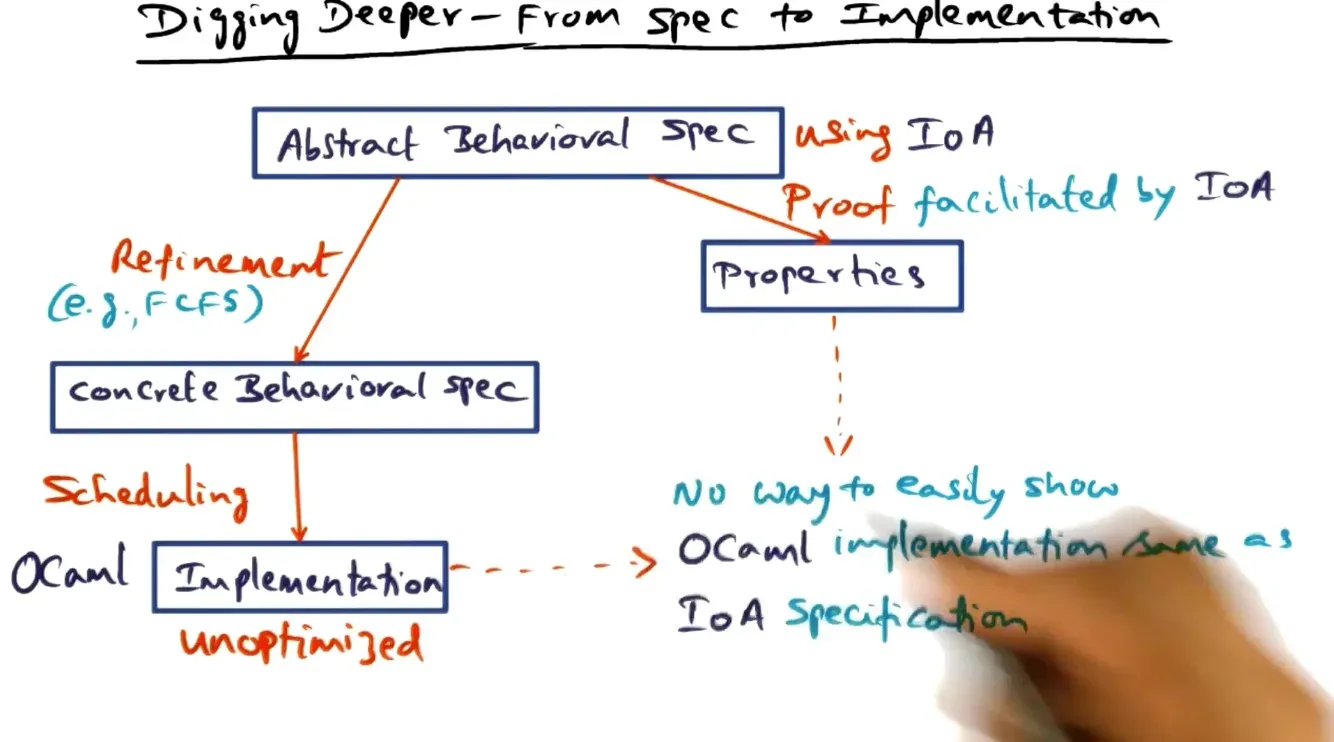 Digging Deeper - From Spec to Implementation
Abstract Behavioral Spec using IOA
Proof facilitated by IOA
Refinement
(e.g., FCFS)
Properties
Concrete Behavioral spec
Scheduling
No way to easily show
OCaml implementation same as
IOA specification
OCaml Implementation
unoptimized